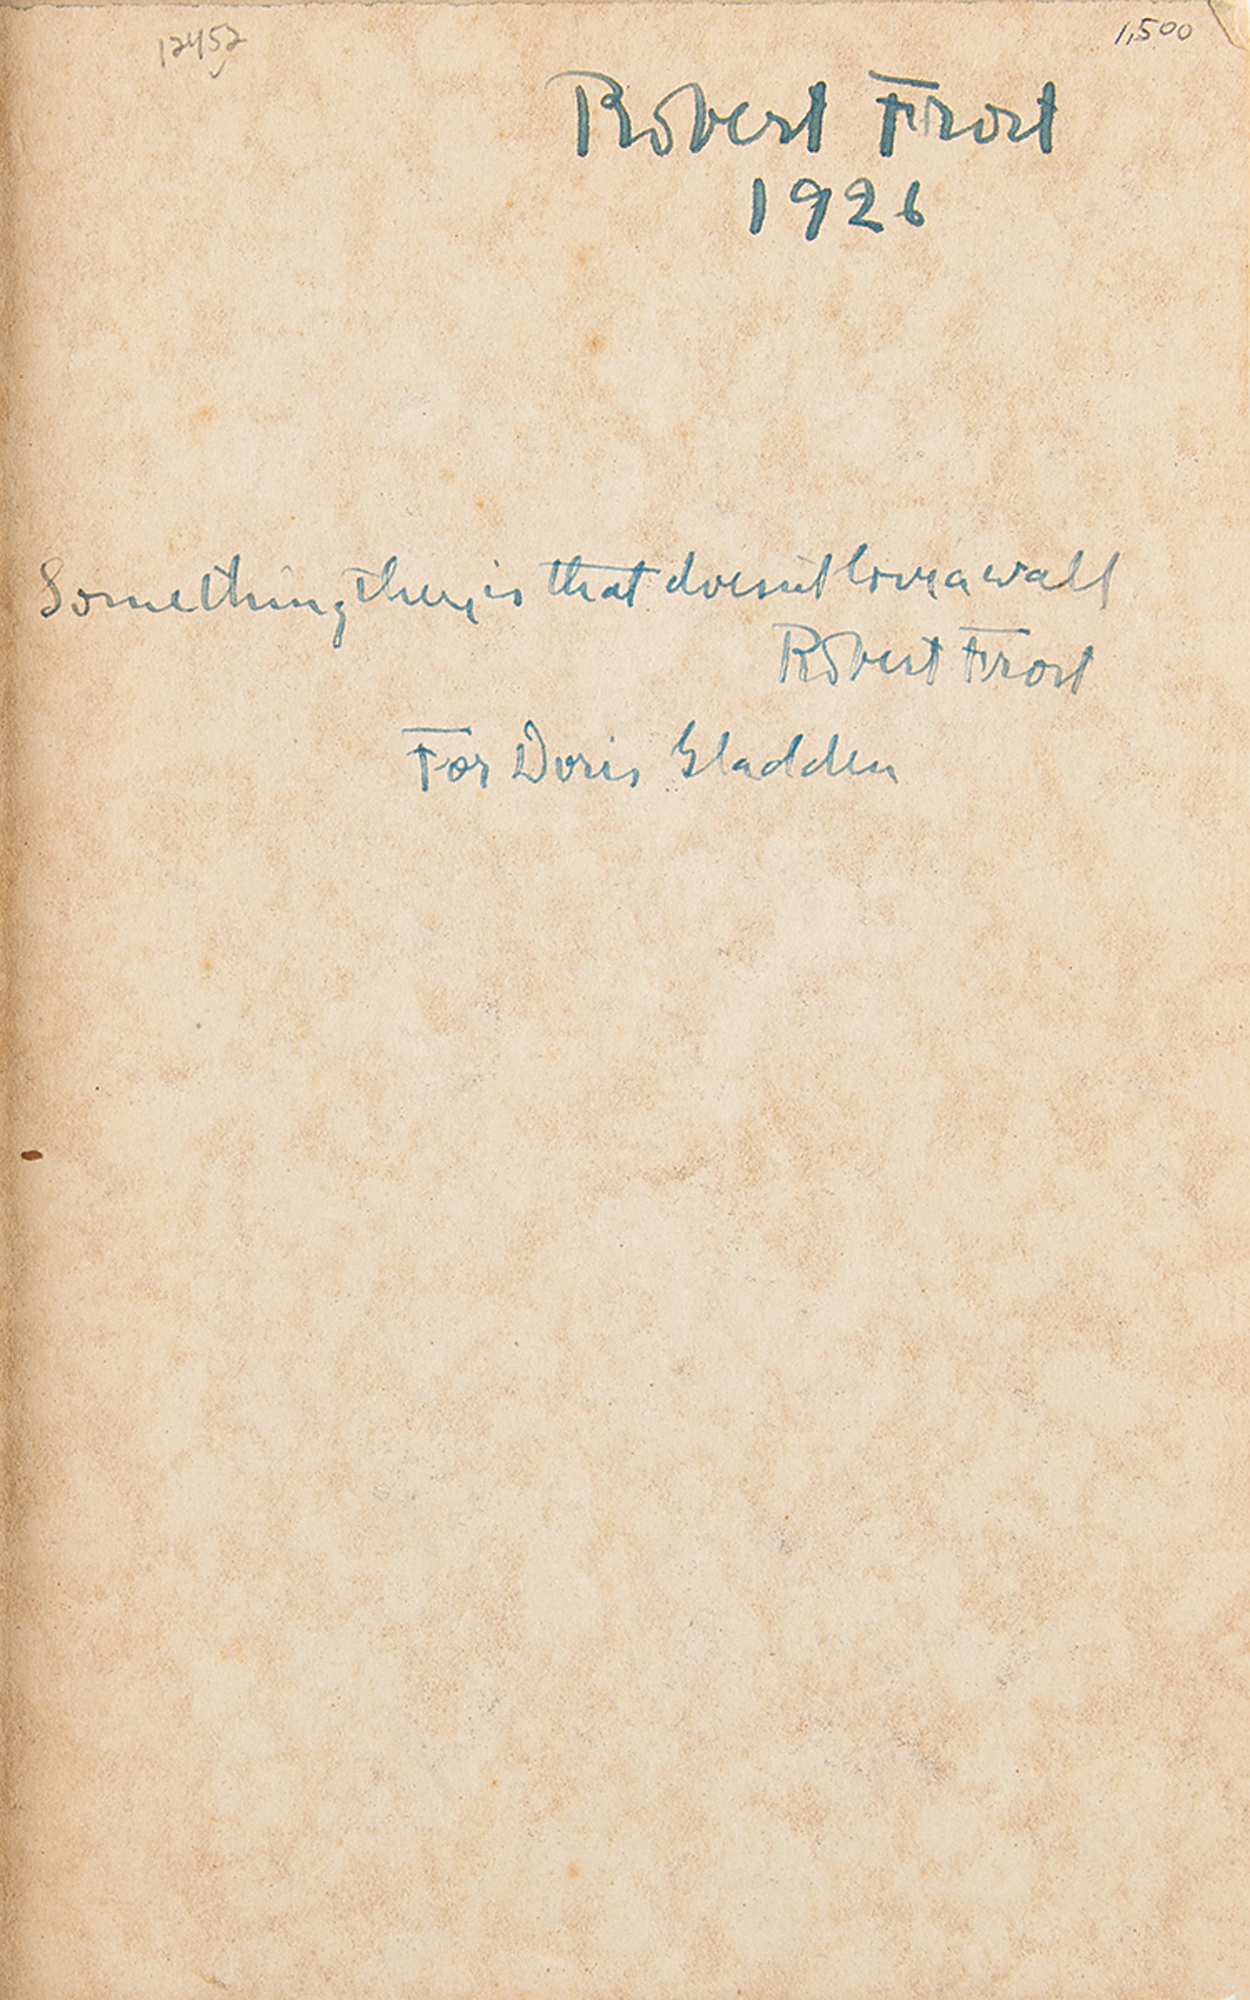 12452
1,500
Robert Frost
1926
Something there is that doesnt love a wall
Robert Frost
For Doris Gladden